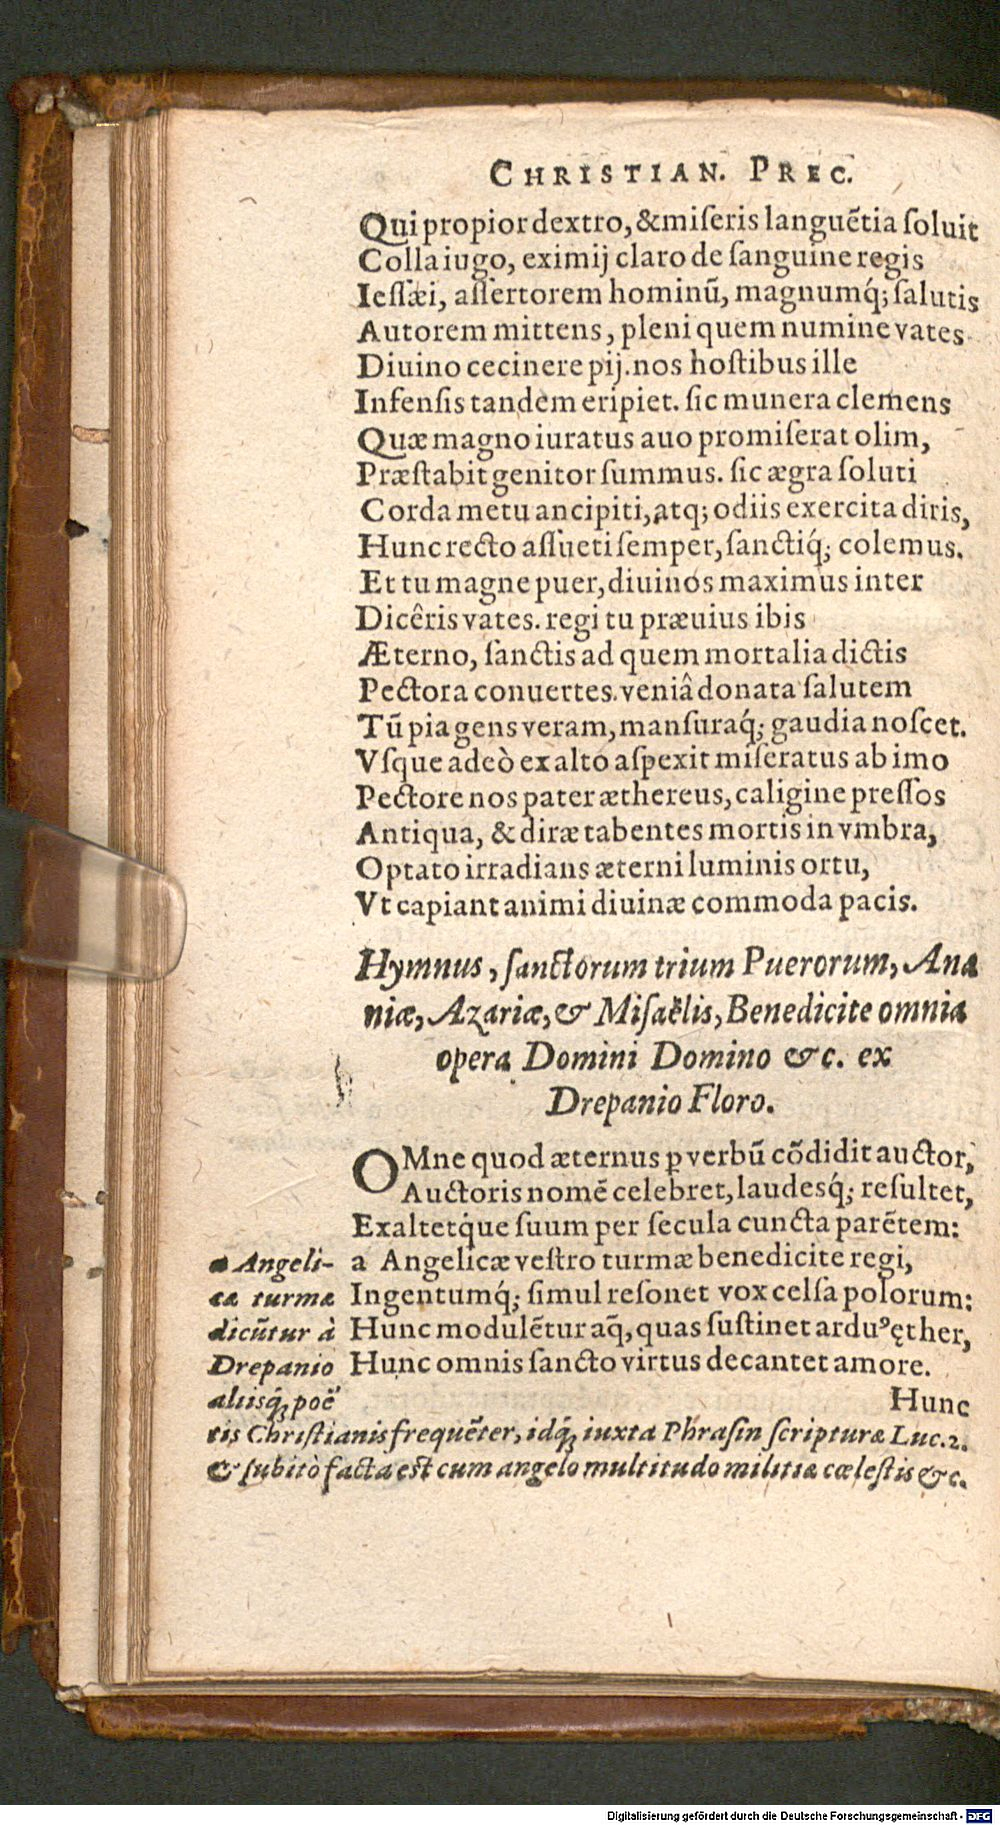 CHRISTIAN. PREC.
Qui propior dextro, & miſeris languẽtia ſoluit
Colla iugo, eximij claro de ſanguine regis
Ieſſæi, aſſertorem hominũ, magnumq́; ſalutis
Autorem mittens, pleni quem numine vates
Diuino cecinere pij. nos hoſtibus ille
Infenſis tandem eripiet. ſic munera clemens
Quæ magno iuratus auo promiſerat olim,
Præſtabit genitor ſummus. ſic ægra ſoluti
Corda metu ancipiti, atq; odiis exercita diris,
Hunc recto aſſueti ſemper, ſanctiq́; colemus.
Et tu magne puer, diuinos maximus inter
Dicêris vates. regi tu præuius ibis
Æterno, ſanctis ad quem mortalia dictis
Pectora conuertes. veniâ donata ſalutem
Tũ pia gens veram, manſuraq́; gaudia noſcet.
Vſque adeò ex alto aſpexit miſeratus ab imo
Pectore nos pater æthereus, caligine preſſos
Antiqua, & diræ tabentes mortis in vmbra,
Optato irradians æterni luminis ortu,
Vt capiant animi diuinæ commoda pacis.
Hymnus, ſanctorum trium Puerorum, Ana
niæ, Azariæ, & Miſaëlis, Benedicite omnia
opera Domini Domino &c. ex
Drepanio Floro.
OMne quod æternus ꝑ verbũ cõdidit auctor,
Auctoris nomẽ celebret, laudesq́; reſultet,
Exaltetq́ue ſuum per ſecula cuncta parẽtem:
a Angelicæ veſtro turmæ benedicite regi,
Ingentumq́; ſimul reſonet vox celſa polorum:
Hunc modulẽtur aq̃, quas ſuſtinet arduꝰ ęther,
Hunc omnis ſancto virtus decantet amore.
Hunc
a Angeli-
cæ turmæ
dicũtur à
Drepanio
aliisq́; poë
tis Chriſtianis frequẽter, idq́; iuxta Phraſin ſcripturæ Luc. 2.
& ſubitò facta eſt cum angelo multitudo militiæ cœleſtis &c.
Digitalisierung gefördert durch die Deutsche Forschungsgemeinschaft - DFG